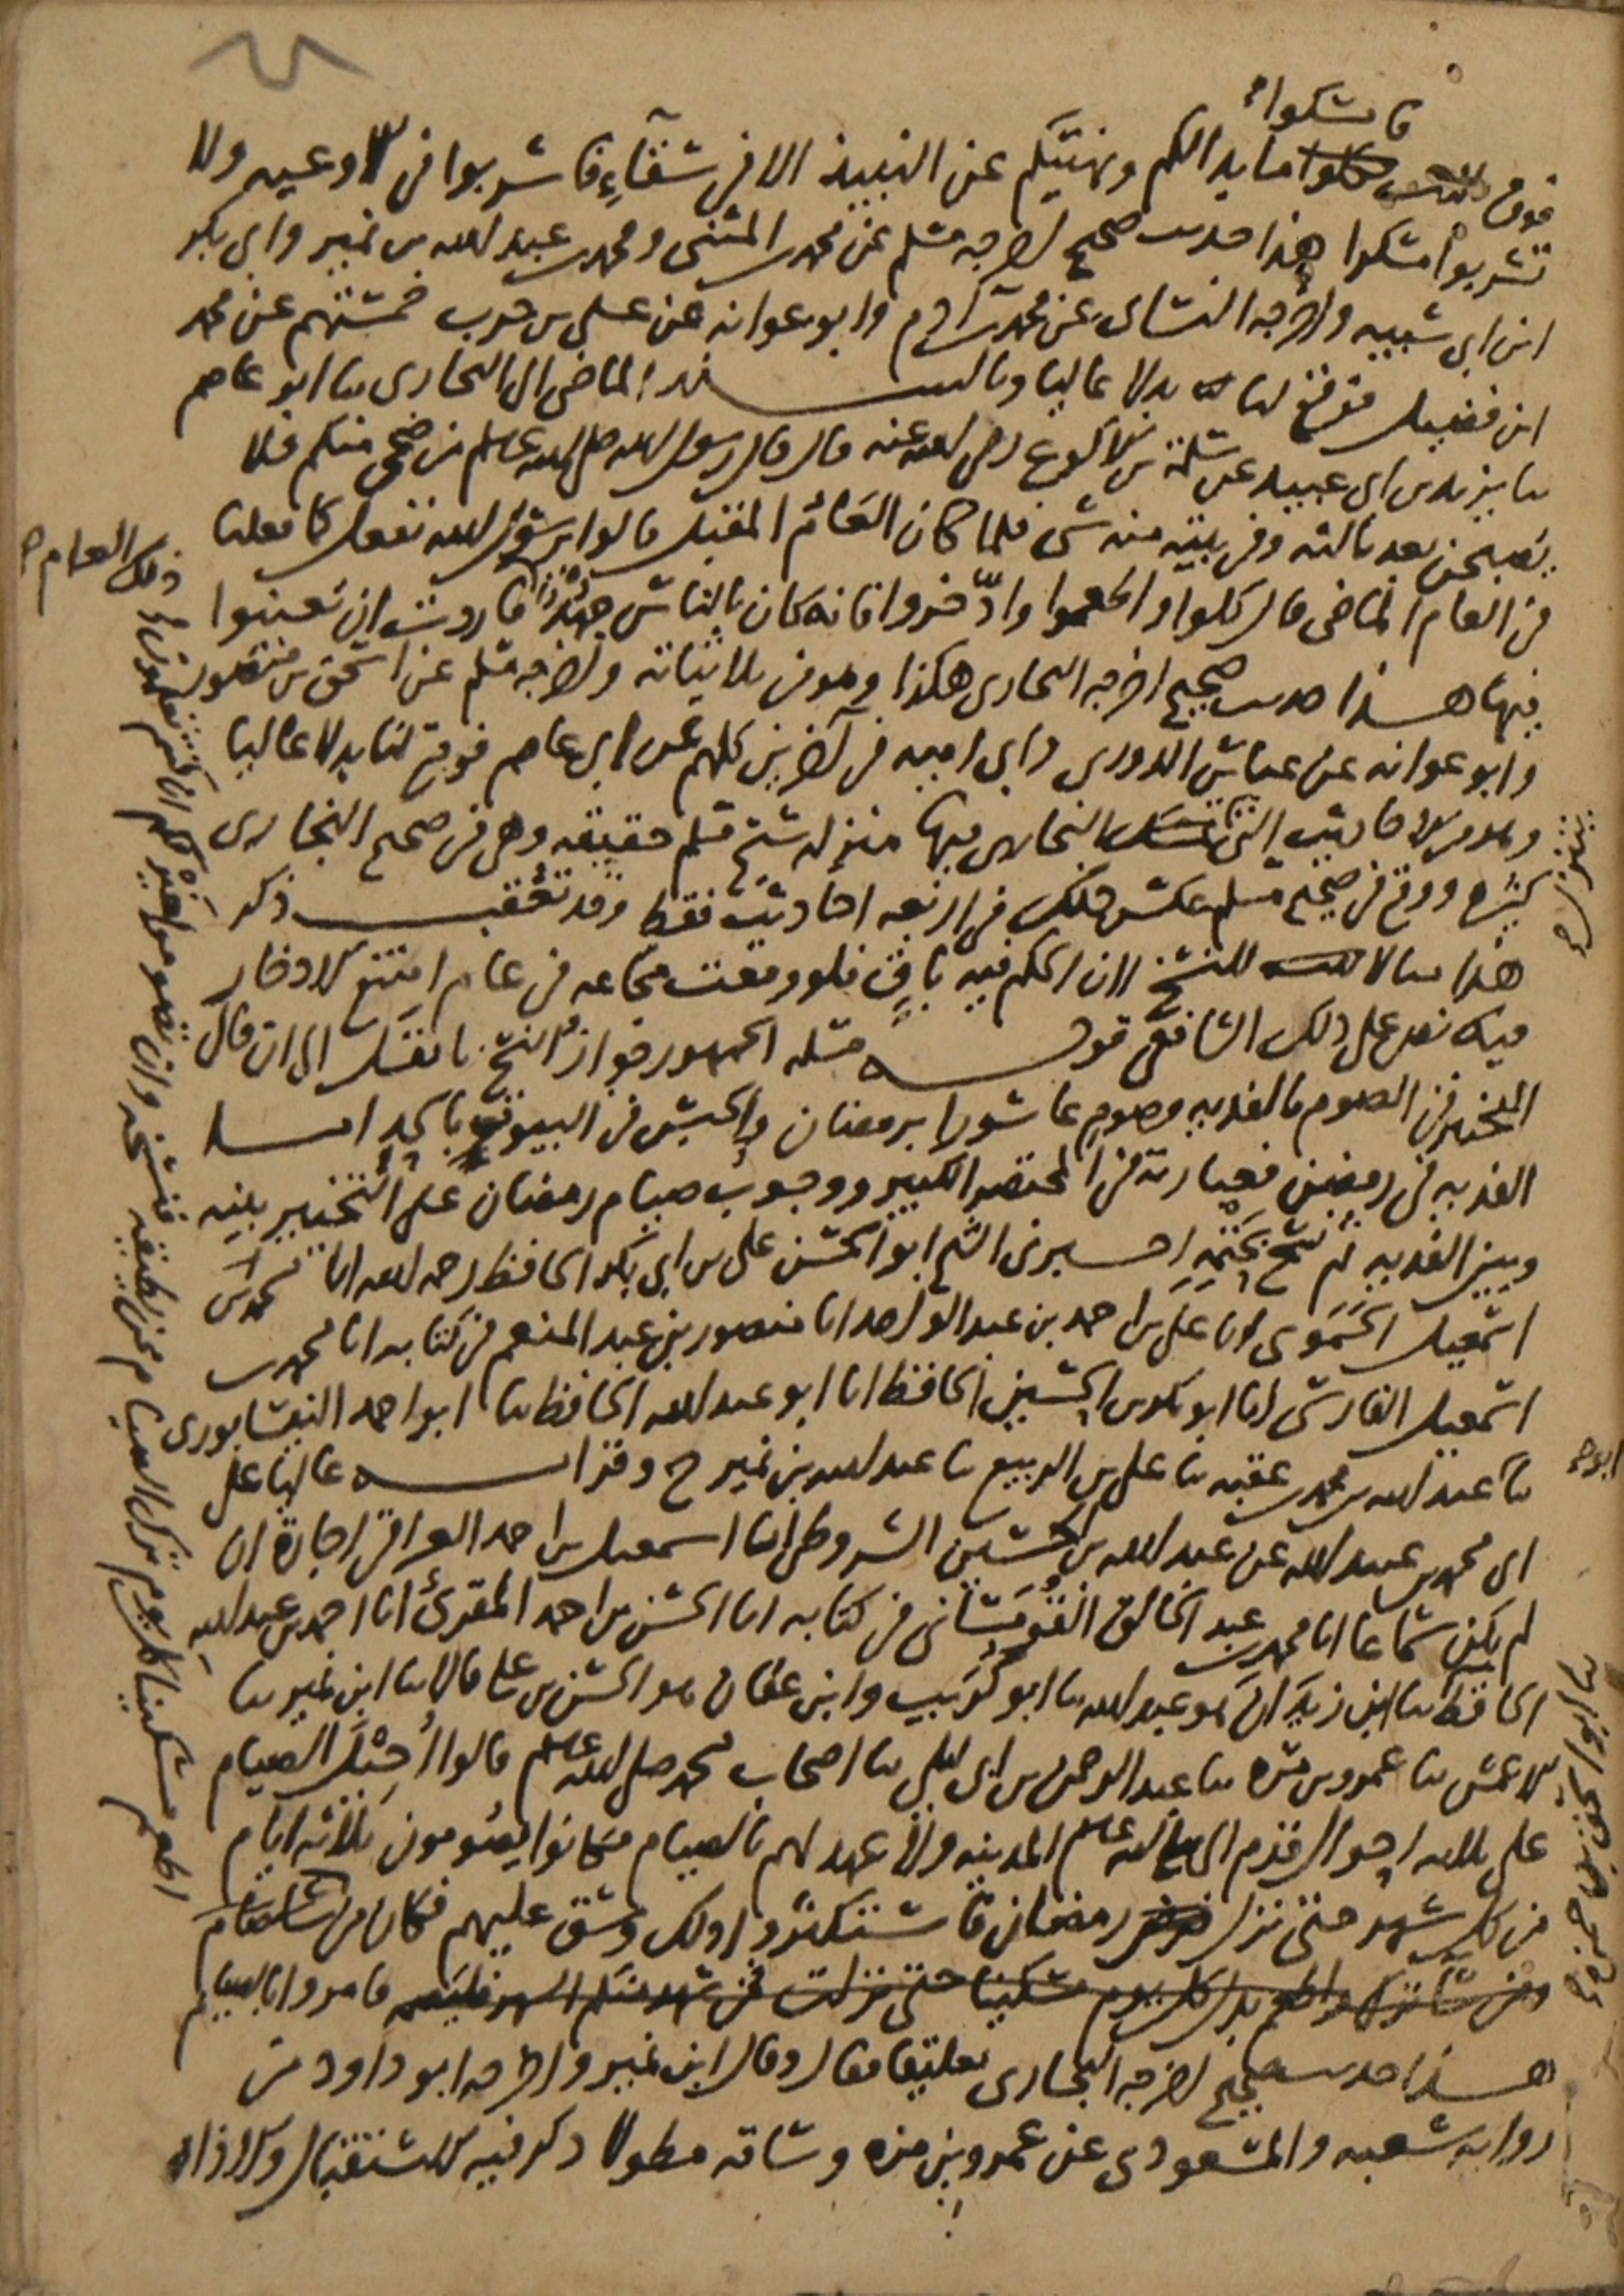 فامسكوا
فوق ثلاث كلوا ما بدا لكم ونهيتكم عن النبيذ الا في سقاء فاشربوا في الاوعيه ولا
تشربوا مسكرا هذا حديث صحيح اخرجه مسلم عن محمد بن المثنى ومحمد بن عبد الله بن نمير وابي بكر
ابن ابي شيبه واخرجه النسائي عن محمد بن ادم وابو عوانه عن علي بن حرب خمستهم عن محمد
ابن فضيل فوقع لنا بدلا عاليا وبالسند الماضي الى البخاري ثنا ابو عاصم
ثنا يزيد بن ابي عبيد عن سلمة بن الاكوع رضي الله عنه قال قال رسول الله صلى الله عليه وسلم من ضحى منكم فلا
يصبحن بعد ثالثه وفي بيته منه شي فلما كان العام المقبل قالوا يرسول الله نفعل كما فعلنا
في العام الماضي قال كلوا واطعموا وادّخروا فانه كان بالناس جهد فاردت ان تعينوا
ذلك العام
فيها هذا حديث صحيح اخرجه البخاري هكذا وهو من ثلاثياته واخرجه مسلم عن اسحق بن منصور
وابو عوانه عن عباس الدوري وابي اميه في آخرين كلهم عن ابي عاصم فوقع لنا بدلا عاليا
وهو من الاحاديث التي البخاري فيها منزله شيخ مسلم حقيقه وهي في صحيح البخاري
كثيره ووقع في صحيح مسلم عكس ذلك في اربعه احاديث فقط وقد تعقب ذكر
هذا مثالا للنسخ لان الحكم فيه باق فلو وقعت مجاعه في عام امتنع الادخار
فيه نص على ذلك الشافعي قوله مسله الجمهور جواز النسخ باثقل الى ان قال
التخيير في الصوم والفديه وصوم عاشورا برمضان والحبس في البيوت بالحد اما
الفديه في رمضان فعبارته في المختصر الكبير ووجوب صيام رمضان على التخيير بينه
وبين الفديه ثم نسخ بحتمه اخبرني الشيخ ابو الحسن علي بن ابي بكر الحافظ رحمه الله انا محمد بن
اسمعيل الحموي انا علي بن احمد بن عبد الواحد انا منصور بن عبد المنعم في كتابه انا محمد بن
اسمعيل الفارسي انا ابو بكر بن الحسين الحافظ انا ابو عبد الله الحافظ ثنا ابو احمد النيسابوري
ثنا عبد الله بن محمد بن عقبه ثنا علي بن الربيع ثنا عبد الله بن نمير ح وقرات عاليا على
ابي محمد بن عبيد الله عن عبد الله بن الحسين الشروطي انا اسمعيل بن احمد العراقي اجازة ان
لم يكن سماعا انا محمد بن عبد الخالق القومساني في كتابه انا الحسن بن احمد المقرئ انا احمد بن عبد الله
الحافظ ثنا ابن زيدان هو عبد الله ثنا ابو كريب وابن عفان هو الحسن بن علي قالا ثنا ابن نمير ثنا
الاعمش ثنا عمرو بن مره ثنا عبد الرحمن بن ابي ليلى ثنا اصحاب محمد صلى الله عليه وسلم قالوا أحيل الصيام
على ثلاثه احوال قدم النبي صلى الله عليه وسلم المدينه ولا عهد لهم بالصيام فكانوا يصومون ثلاثه ايام
من كل شهر حتى نزل رمضان فاستكثروا ذلك وشق عليهم فكان من
فامروا بالصيام
هذا حديث صحيح اخرجه البخاري تعليقا فقال وقال ابن نمير واخرجه ابو داود من
روايه شعبه والمسعودي عن عمرو بن مره وساقه مطولا ذكر فيه الاستقبال والاذان
اطعم مسكينا كل يوم ترك الصيام ممن يطيقه فنسخه وان تصوموا خير لكم ان كنتم تعلمون